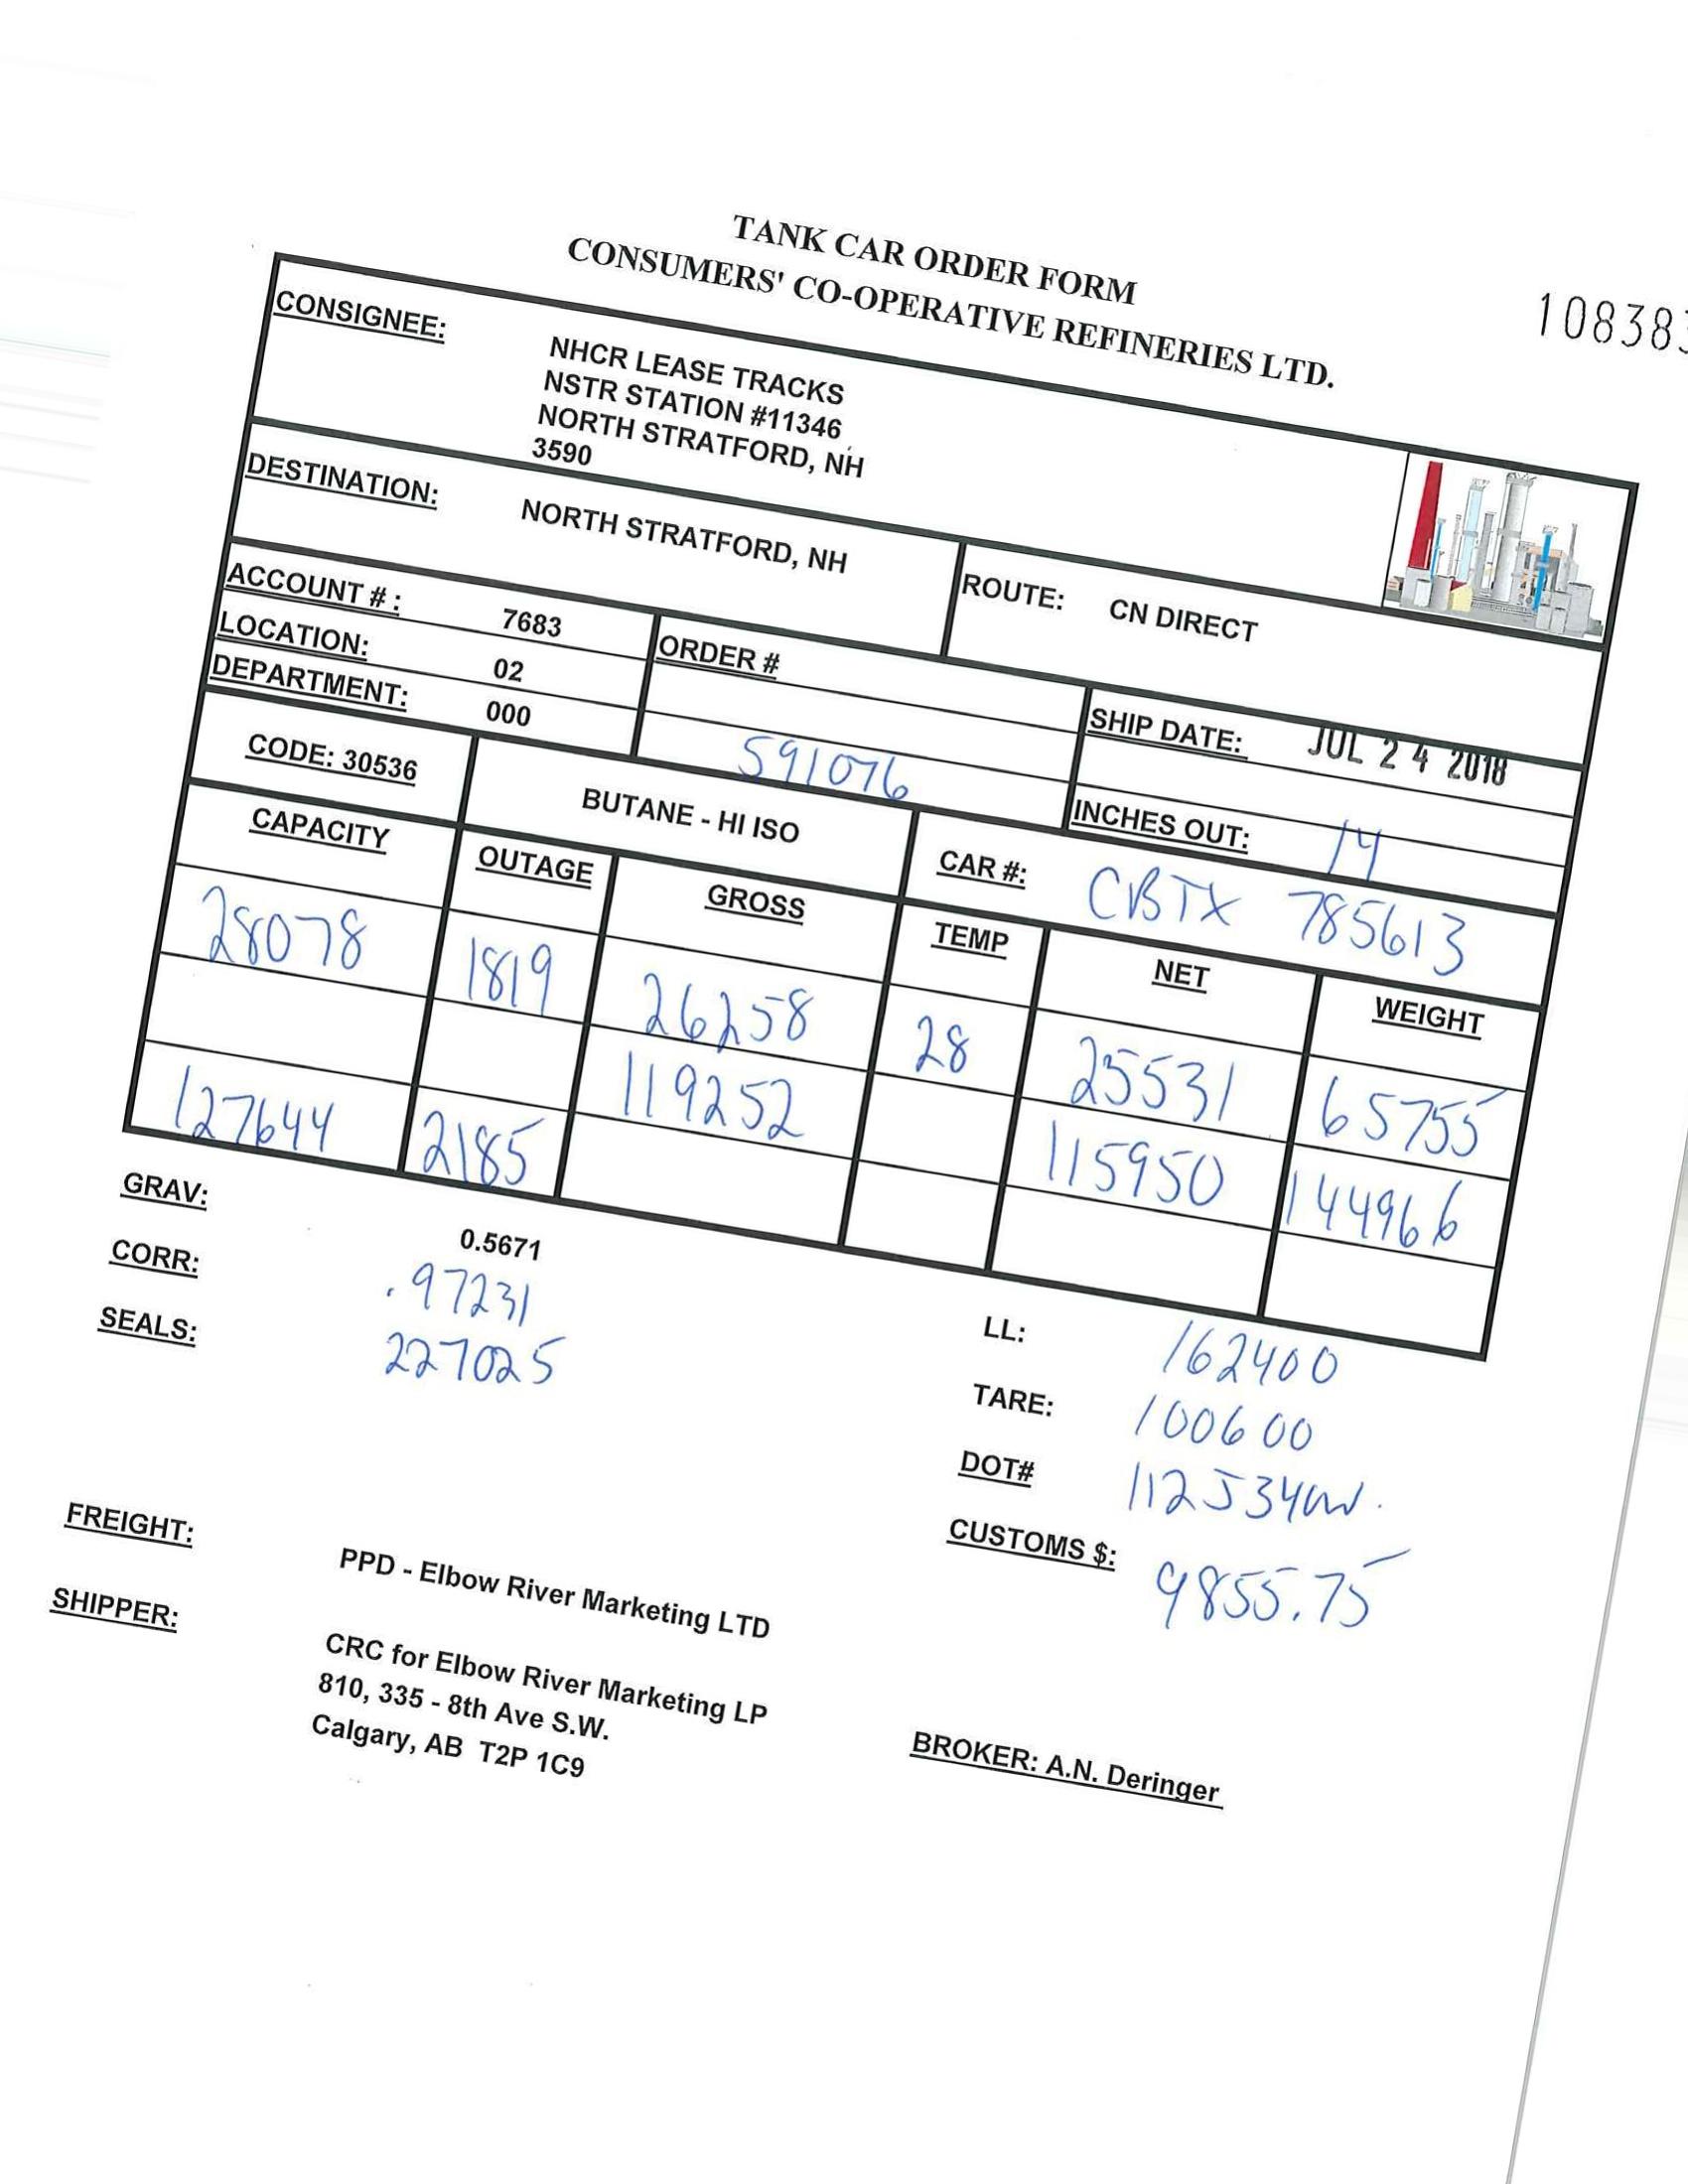 TANK CAR ORDER FORM
CONSUMERS' CO-OPERATIVE REFINERIES LTD.
10838
CONSIGNEE:
NHCR LEASE TRACKS
NSTR STATION #11346
NORTH STRATFORD, NH
3590
DESTINATION: NORTH STRATFORD, NH
ROUTE: CN DIRECT
ACCOUNT # : 7683
LOCATION: 02
DEPARTMENT: 000
ORDER #
591076
SHIP DATE: JUL 24 2018
INCHES OUT: 14
CODE: 30536 BUTANE - HI ISO CAR #: CBTX 785613
CAPACITY OUTAGE GROSS TEMP NET WEIGHT
28078 1819 26258 28 25531 65755
119252 115950 144966
127644 2185
GRAV: 0.5671
CORR: .97231
SEALS: 227025
LL: 162400
TARE: 100600
DOT# 112J340W.
CUSTOMS $: 9855.75
FREIGHT: PPD - Elbow River Marketing LTD
SHIPPER: CRC for Elbow River Marketing LP
810, 335 - 8th Ave S.W.
Calgary, AB T2P 1C9
BROKER: A.N. Deringer